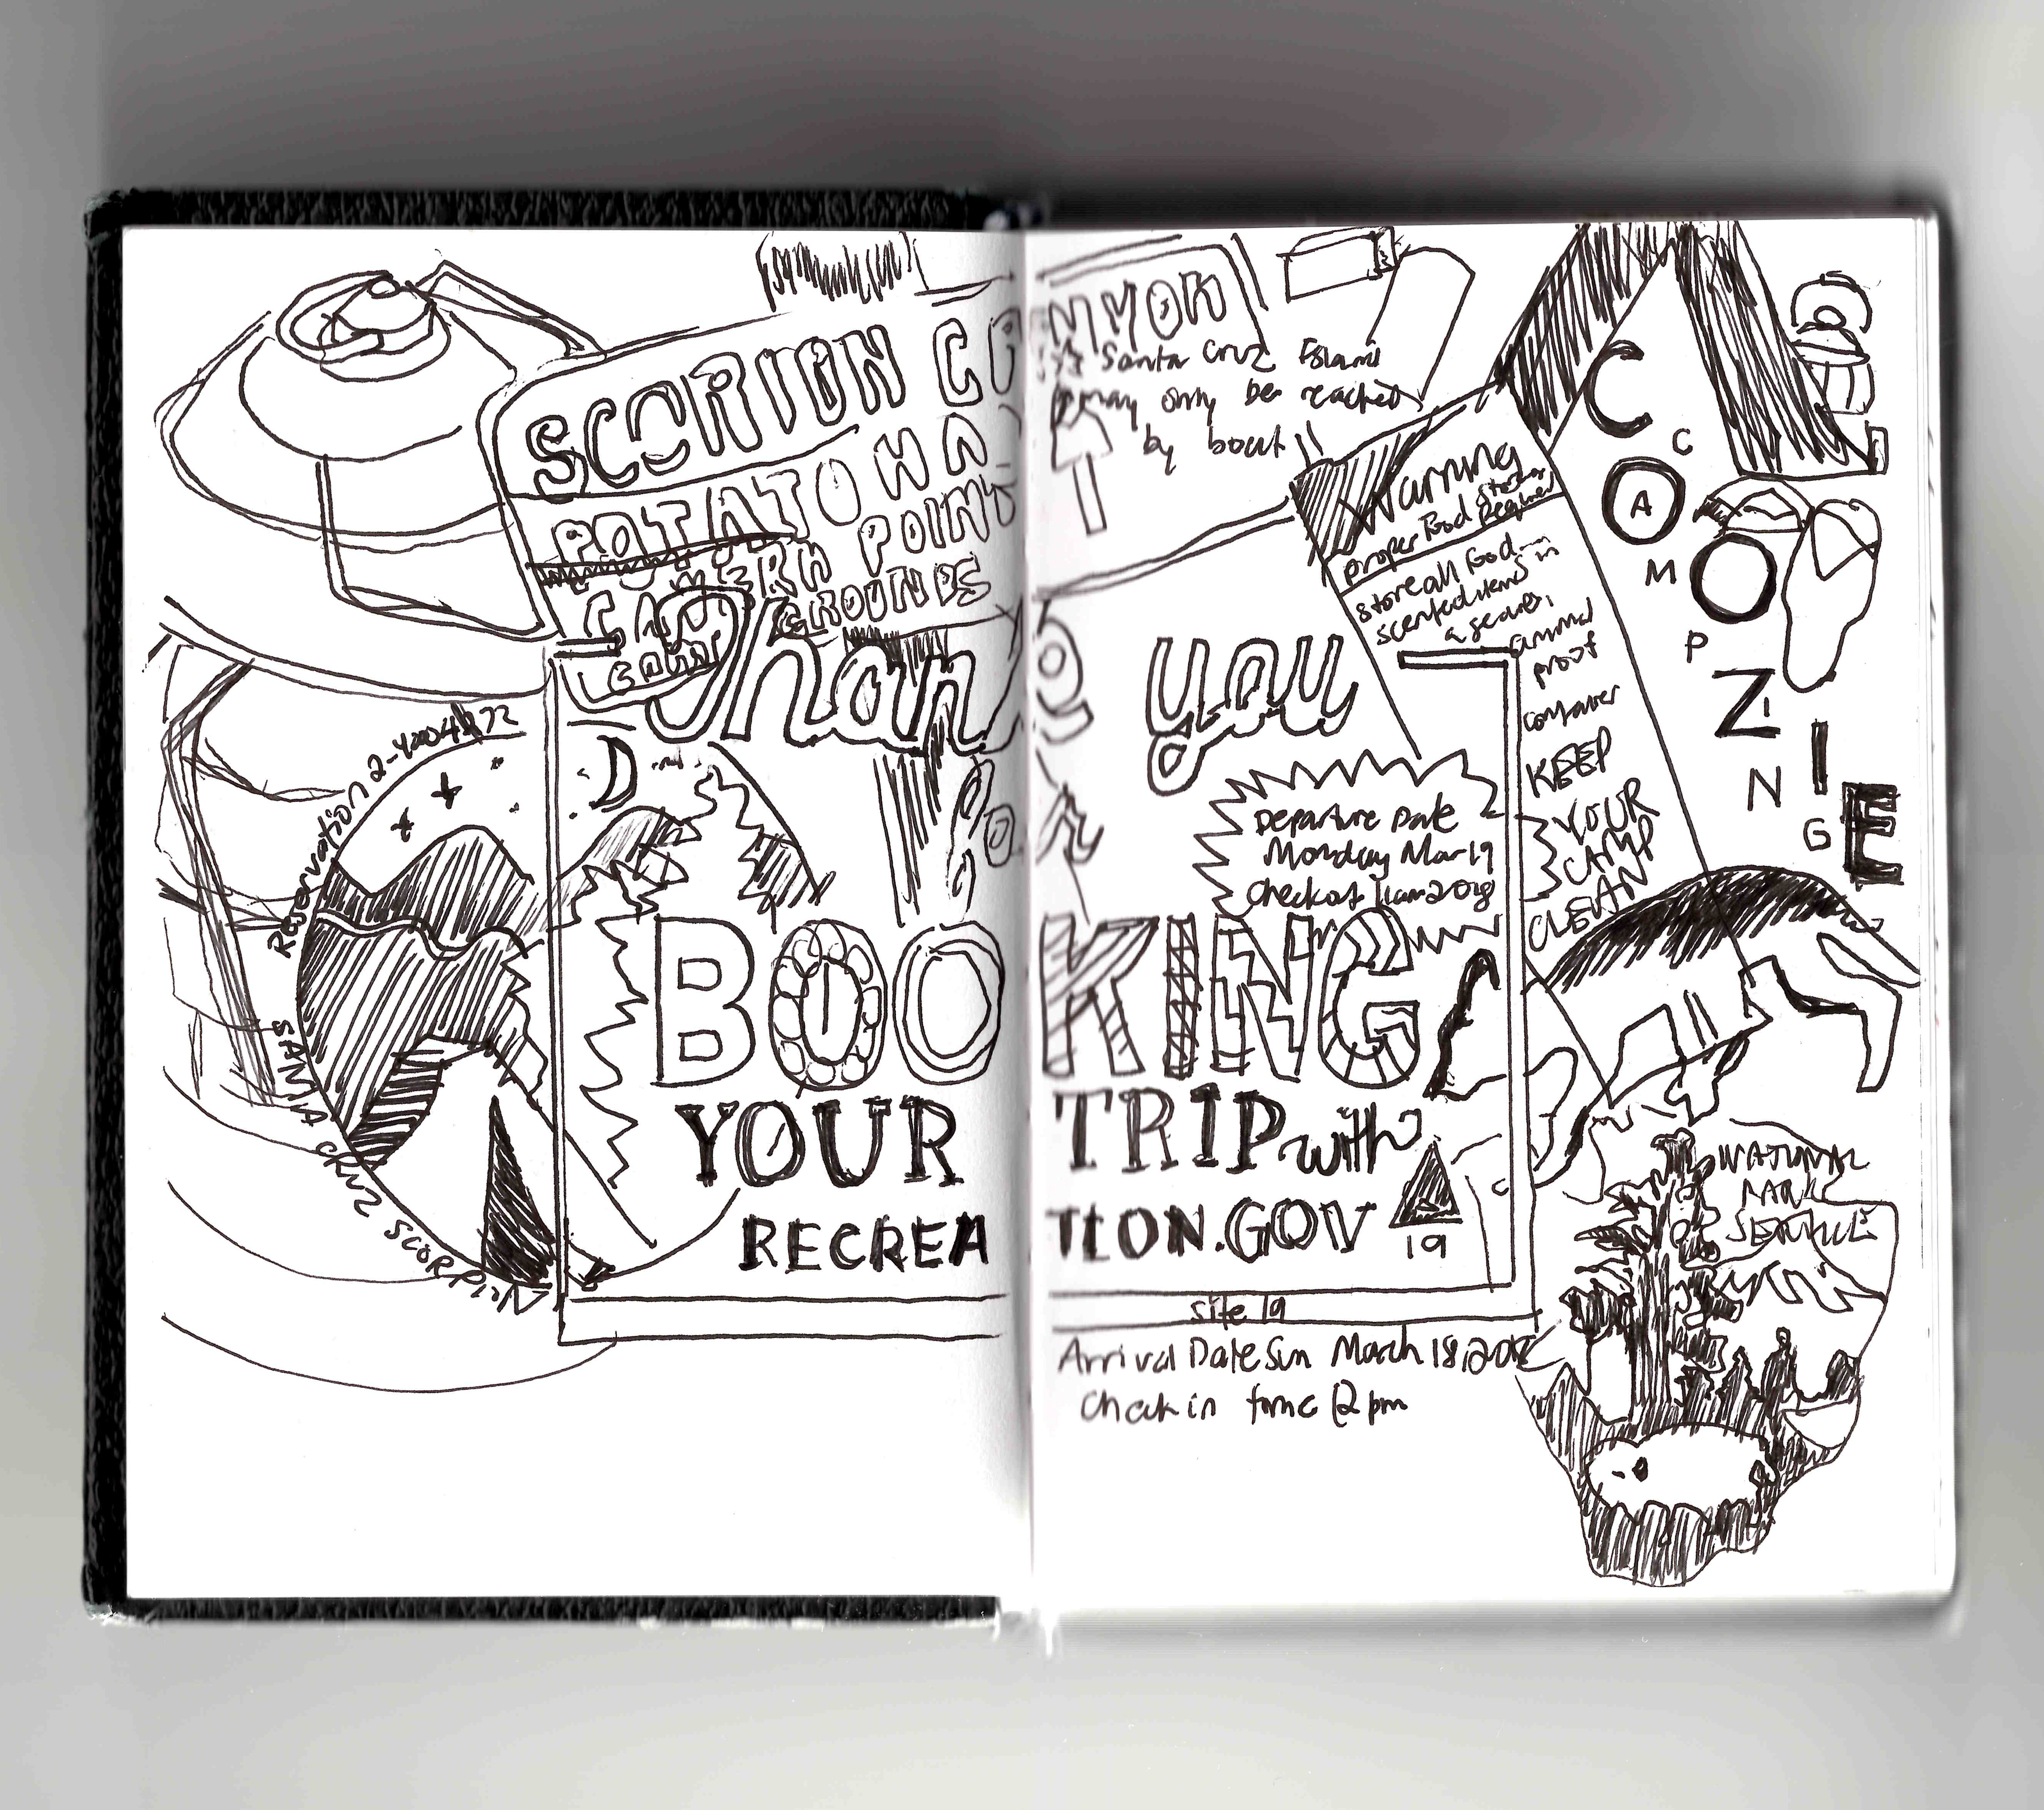 SCORIION CANYON
POTATO HA
CAVERN POINT
CAMP GROUNDS
Santa Cruz Island
may only be reached
by boat
Warning
proper Food Storage Required
store all food
scented items in
a secure,
animal
proof
container
KEEP
YOUR
CAMP
CLEAN
COZIE
CAMPING
Thank you
Reservation 2-4004272
SANTA CRUZ SCORPION
Departure Date
Monday Mar 19
Checkout 11am 2018
BOOKING
YOUR TRIP with
RECREATION.GOV
19
site 19
Arrival Date Sun March 18, 2018
Check in time 12 pm
NATIONAL
PARK
SERVICE